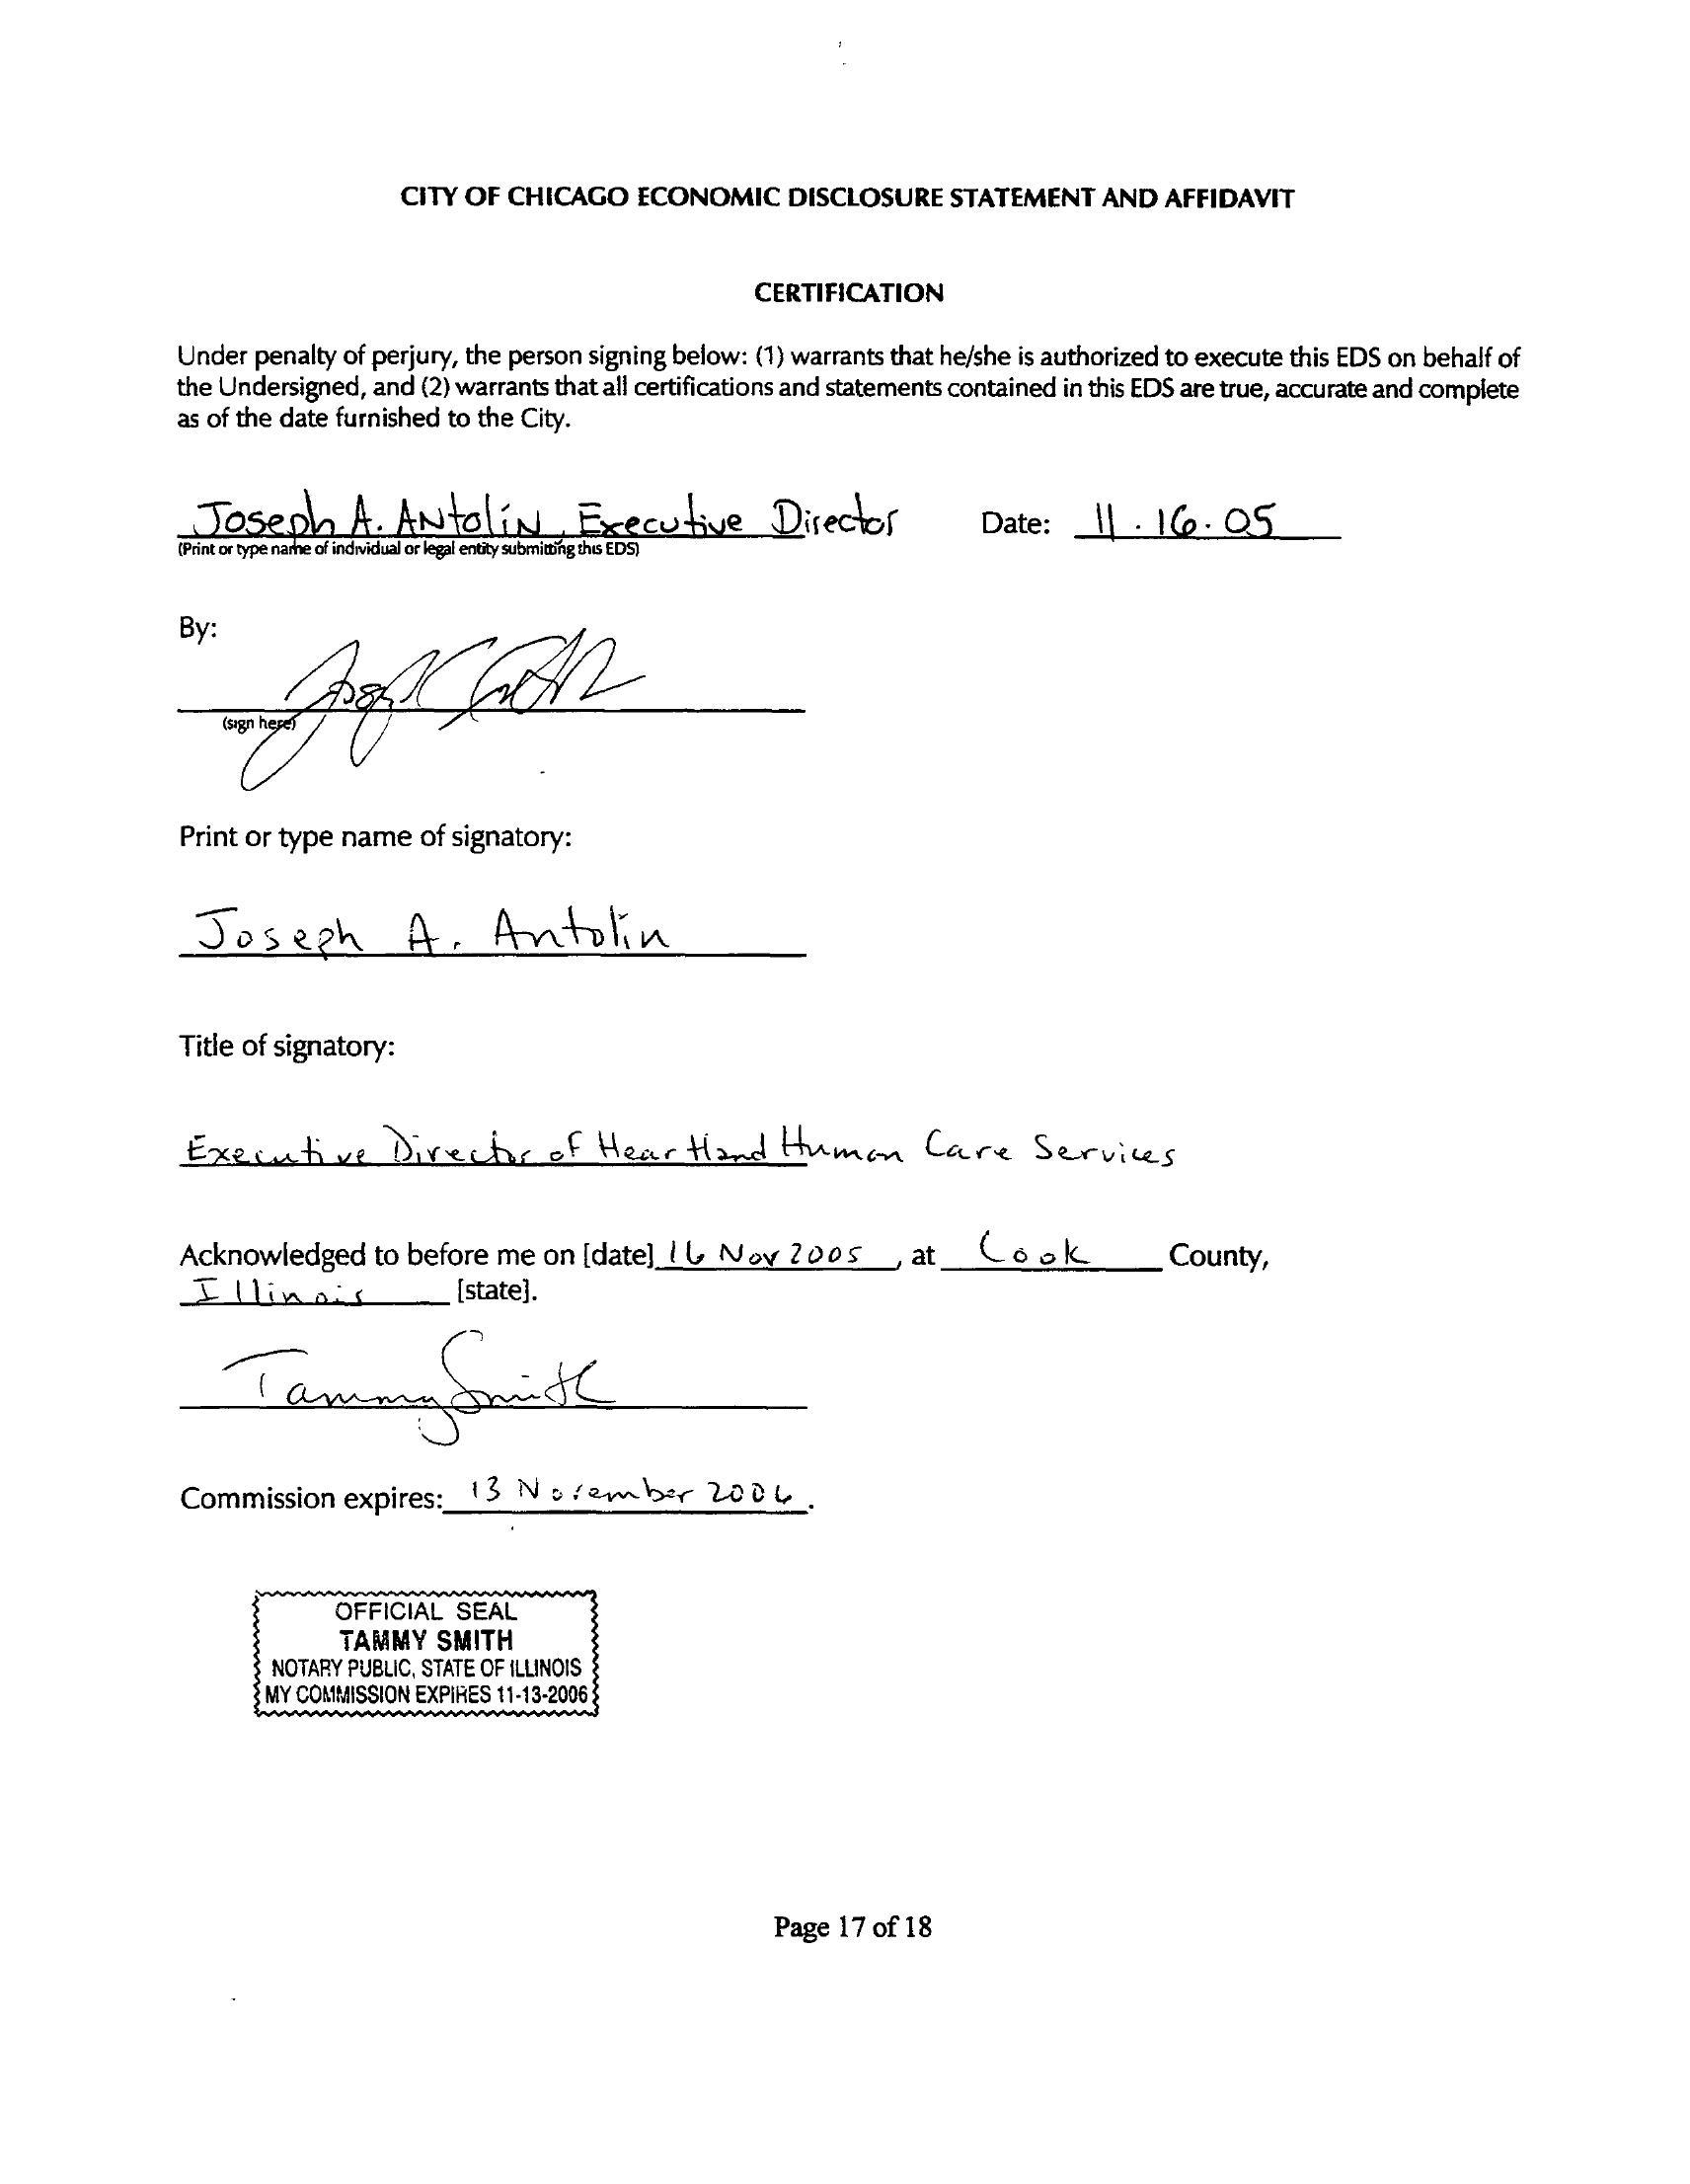 CITY OF CHICAGO ECONOMIC DISCLOSURE STATEMENT AND AFFIDAVIT
CERTIFICATION
Under penalty of perjury, the person signing below: (1) warrants that he/she is authorized to execute this EDS on behalf of
the Undersigned, and (2) warrants that all certifications and statements contained in this EDS are true, accurate and complete
as of the date furnished to the City.
Joseph A. Antolin, Executive Director Date: 11.16.05
(Print or type name of individual or legal entity submitting this EDS)
By:
(sign here)
Print or type name of signatory:
Joseph A. Antolin
Title of signatory:
Executive Director of Heartland Human Care Services
Acknowledged to before me on [date] 16 Nov 2005, at Cook County,
Illinois [state].
Tammy Smith
Commission expires: 13 November 2006.
OFFICIAL SEAL
TAMMY SMITH
NOTARY PUBLIC, STATE OF ILLINOIS
MY COMMISSION EXPIRES 11-13-2006
Page 17 of 18